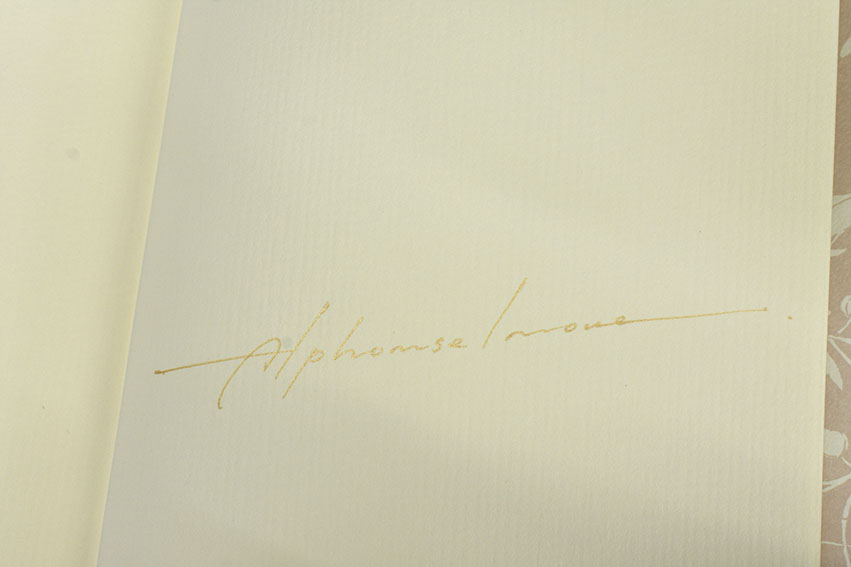 Alphonse Inoue.